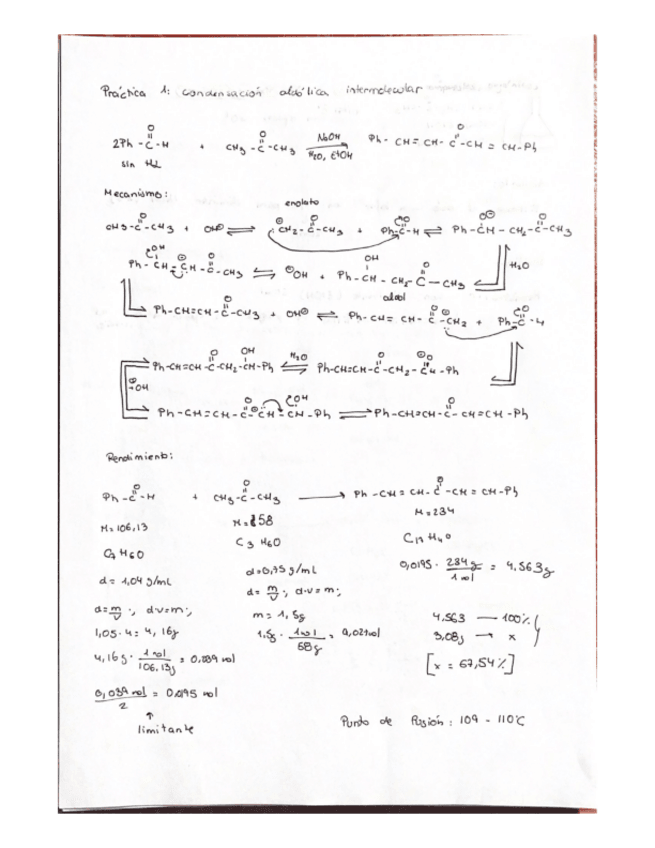 Práctica 1: condensación aldólica intermolecular
2Ph-C(=O)-H + CH3-C(=O)-CH3 NaOH H2O, EtOH Ph-CH=CH-C(=O)-CH=CH-Ph
sin
Mecanismo:
enolato
CH3-C(=O)-CH3 + OH⊖ ⇌ ⊖CH2-C(=O)-CH3 + Ph-C(=O)-H ⇌ Ph-CH(O⊖)-CH2-C(=O)-CH3
H2O
Ph-CH(OH)-⊖CH-C(=O)-CH3 ⇌ ⊖OH + Ph-CH(OH)-CH2-C(=O)-CH3
aldol
Ph-CH=CH-C(=O)-CH3 + OH⊖ ⇌ Ph-CH=CH-C(=O)-⊖CH2 + Ph-C(=O)-H
Ph-CH=CH-C(=O)-CH2-CH(OH)-Ph H2O ⇌ Ph-CH=CH-C(=O)-CH2-CH(O⊖)-Ph
⊖OH
Ph-CH=CH-C(=O)-⊖CH-CH(OH)-Ph ⇌ Ph-CH=CH-C(=O)-CH=CH-Ph
Rendimiento:
Ph-C(=O)-H + CH3-C(=O)-CH3 → Ph-CH=CH-C(=O)-CH=CH-Ph
M=106,13 M=58 M=234
C7H6O C3H6O
d=1,04 g/mL d=0,75 g/mL 0,0195 · 234g/1mol = 4,563g
d=m/v ; d·v=m; d=m/v ; d·v=m;
1,05·4=4,16g m=1,5g 4,563 — 100%
4,16g · 1mol/106,13g = 0,039 mol 1,5g · 1mol/58g = 0,02mol 3,08g → x
[x = 67,54%]
0,039 mol/2 = 0,0195 mol
↑
limitante
Punto de fusión: 109 - 110°C